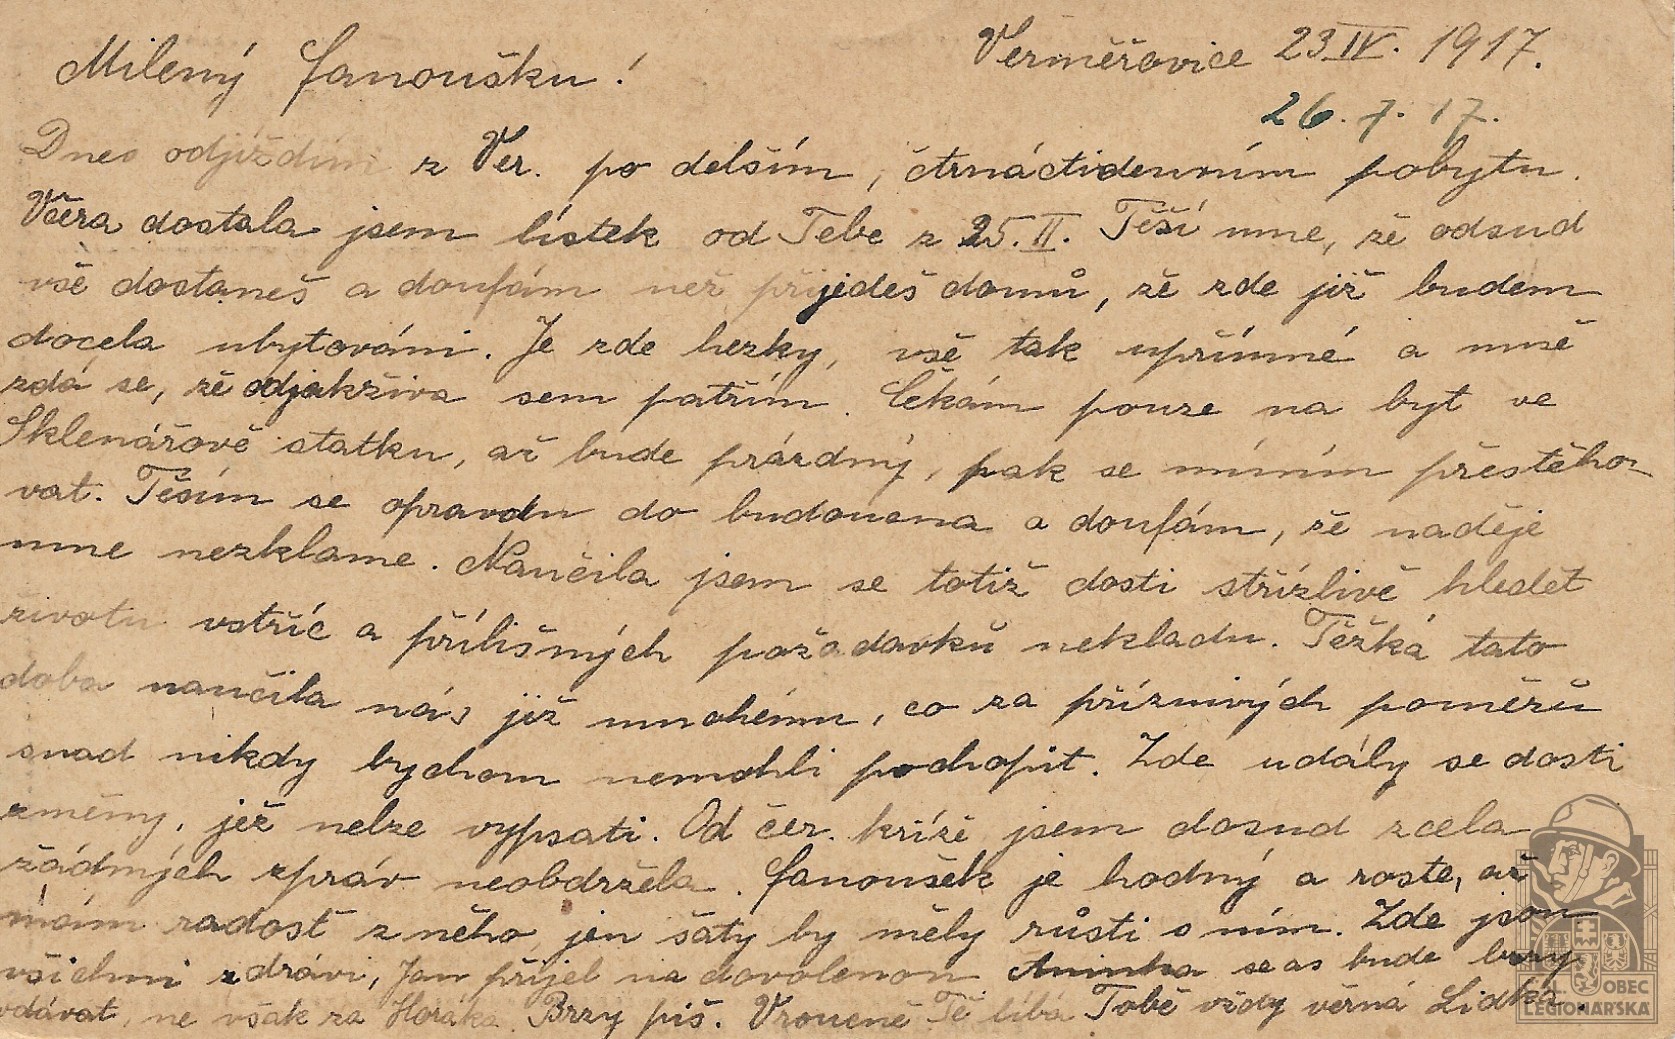 Verměřovice 23 IV. 1917.
Milený Fanoušku!
26. 7. 17.
Dnes odjíždím z Ver. po delším, čtrnáctidenním pobytu.
Včera dostala jsem lístek od Tebe z 25. II. Těší mne, že odsud
vše dostaneš a doufám než přijedeš domů, že zde již budem
docela ubytováni. Je zde hezky, vše tak upřímné a mně
zdá se, že odjakživa sem patřím. Čekám pouze na byt ve
Sklenářově statku, až bude prázdný, pak se míním přestěho-
vat. Těším se opravdu do budoucna a doufám, že naděje
mne nezklame. Naučila jsem se totiž dosti střízlivě hledět
životu vstříc a přílišných požadavků nekladu. Těžká tato
doba naučila nás již mnohému, co za příznivých poměrů
snad nikdy bychom nemohli pochopit. Zde udály se dosti
změny, jež nelze vypsati. Od čer. kříže jsem dosud zcela
žádných zpráv neobdržela. Fanoušek je hodný a roste, až
mám radost z něho, jen šaty by měly růsti s ním. Zde jsou
všichni zdrávi, Jan přijel na dovolenou Aninka se as bude brzy
vdávat, ne však za Horáka. Brzy piš. Vroucně Tě líbá Tobě vždy věrná Lidka.
ČS. OBEC
LEGIONÁŘSKÁ